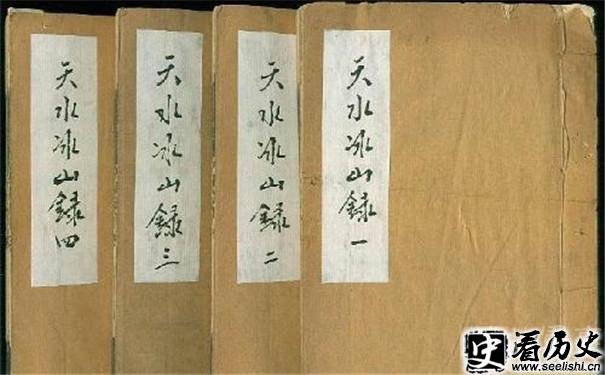 天水冰山録一
天水冰山録二
天水冰山録三
天水冰山録四
史看历史
www.seelishi.cn